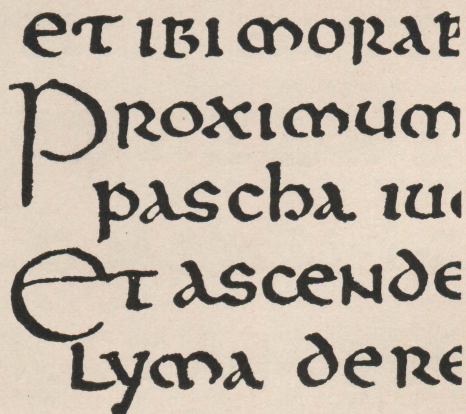 et ibi morab
Proximum
pascha iu
Et ascende
Lyma de re